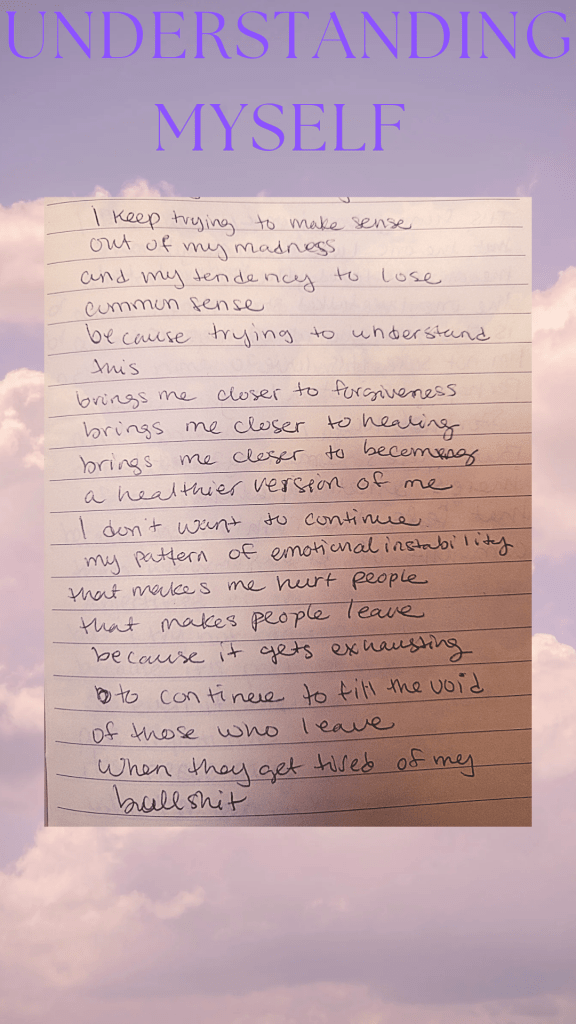 UNDERSTANDING
MYSELF
I keep trying to make sense
out of my madness
and my tendency to lose
common sense
because trying to understand
this
brings me closer to forgiveness
brings me closer to healing
brings me closer to becoming
a healthier version of me
I don't want to continue
my pattern of emotional instability
that makes me hurt people
that makes people leave
because it gets exhausting
to continue to fill the void
of those who leave
when they get tired of my
bullshit